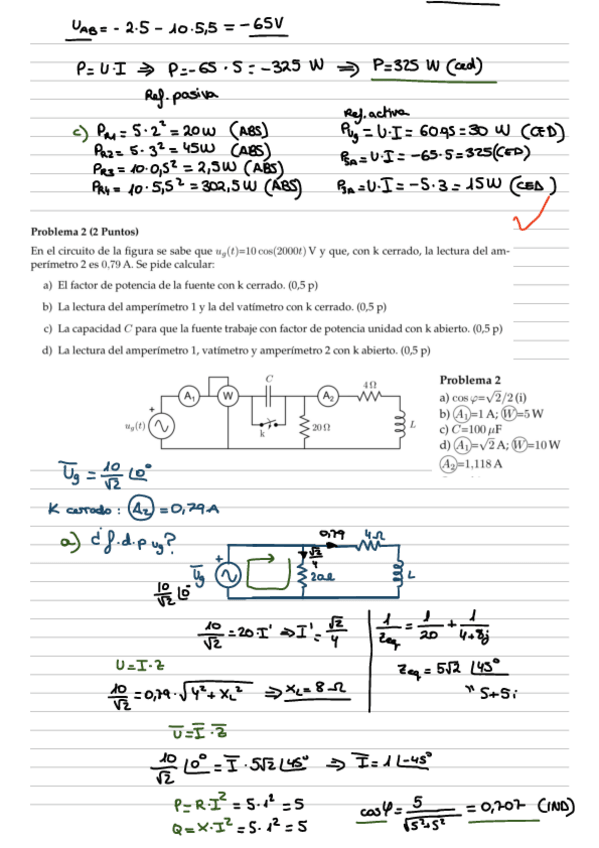 U_AB = - 2·5 - 10·5,5 = -65V
P= U·I ⇒ P= -65 · 5 = -325 W ⇒ P=325 W (ced)
Ref. pasiva
Ref. activa
c) P_R1 = 5·2² = 20W (ABS)
P_R2 = 5·3² = 45W (ABS)
P_R3 = 10·0,5² = 2,5W (ABS)
P_R4 = 10·5,5² = 302,5W (ABS)
P_Ug = U·I = 60·0,5 = 30 W (CED)
P_5A = U·I = -65·5 = 325 (CED)
P_3A = U·I = -5·3 = 15W (CED)
Problema 2 (2 Puntos)
En el circuito de la figura se sabe que u_g(t)=10 cos(2000t) V y que, con k cerrado, la lectura del am-
perímetro 2 es 0,79 A. Se pide calcular:
a) El factor de potencia de la fuente con k cerrado. (0,5 p)
b) La lectura del amperímetro 1 y la del vatímetro con k cerrado. (0,5 p)
c) La capacidad C para que la fuente trabaje con factor de potencia unidad con k abierto. (0,5 p)
d) La lectura del amperímetro 1, vatímetro y amperímetro 2 con k abierto. (0,5 p)
+
u_g(t)
A₁
W
C
k
A₂
20 Ω
4 Ω
L
Problema 2
a) cos φ=√2/2 (i)
b) (A₁)=1 A; (W)=5 W
c) C=100 µF
d) (A₁)=√2 A; (W)=10 W
(A₂)=1,118 A
U̅g = 10/√2 ∠0°
K cerrado : (A₂) = 0,79A
a) ¿f.d.p ug?
+
U̅g
10/√2 ∠0°
√2/4
20Ω
0,79
4Ω
L
10/√2 = 20·I' ⇒ I' = √2/4
1/Zeq = 1/20 + 1/(4+8j)
U=I·Z
Zeq = 5√2 ∠45°
" 5+5i
10/√2 = 0,79·√(4²+X_L²) ⇒ X_L = 8Ω
U̅ = I̅ · Z̅
10/√2 ∠0° = I̅ · 5√2 ∠45° ⇒ I̅ = 1∠-45°
P= R·I² = 5·1² = 5
Q = X·I² = 5·1² = 5
cosφ = 5/√(5²+5²) = 0,707 (IND)